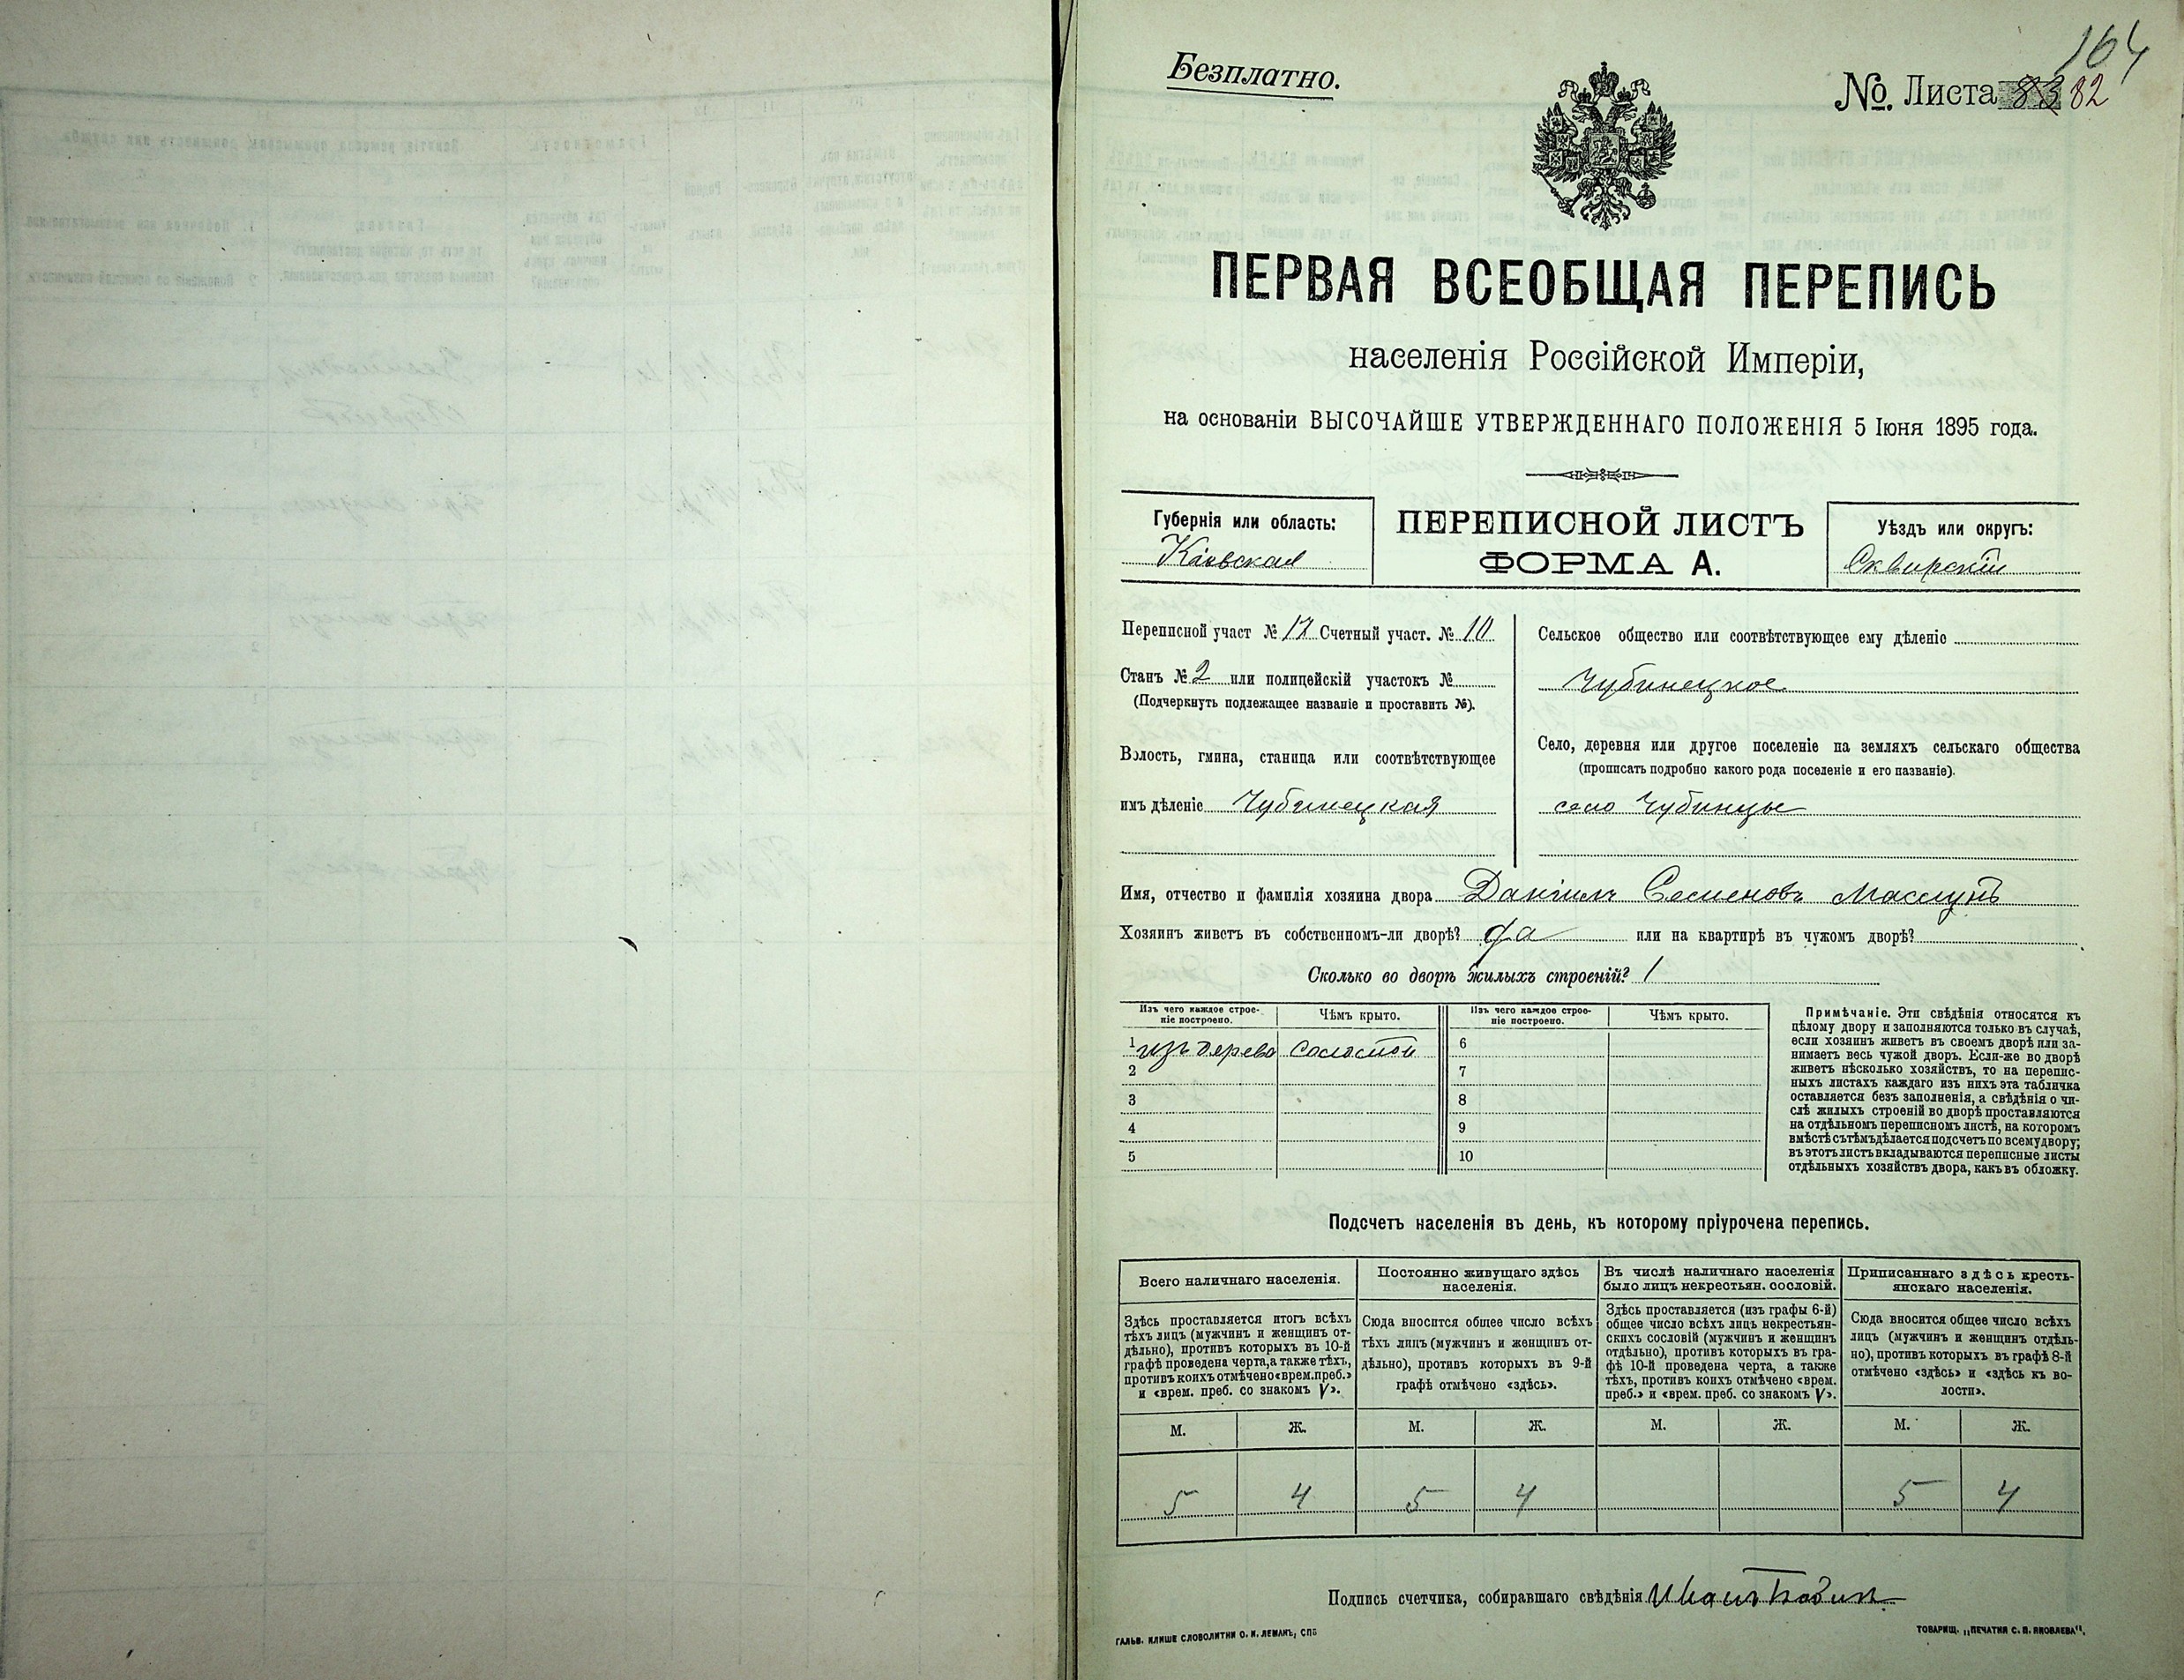 164
Безплатно.
№. Листа 83 82
ПЕРВАЯ ВСЕОБЩАЯ ПЕРЕПИСЬ
населенія Россійской Имперіи,
на основаніи ВЫСОЧАЙШЕ УТВЕРЖДЕННАГО ПОЛОЖЕНІЯ 5 Іюня 1895 года.
Губернія или область:
Кіевская
ПЕРЕПИСНОЙ ЛИСТЪ
ФОРМА А.
Уѣздъ или округъ:
Сквирскій
Переписной участ № 17 Счетный участ. № 10
Станъ № 2 или полицейскій участокъ №
(Подчеркнуть подлежащее названіе и проставить №).
Волость, гмина, станица или соотвѣтствующее
имъ дѣленіе Чубинецкая
Сельское общество или соотвѣтствующее ему дѣленіе
Чубинецкое
Село, деревня или другое поселеніе на земляхъ сельскаго общества
(прописать подробно какого рода поселеніе и его названіе).
село Чубинцы
Имя, отчество и фамилія хозяина двора Даніилъ Семеновъ
Хозяинъ живетъ въ собственномъ-ли дворѣ? да или на квартирѣ въ чужомъ дворѣ?
Сколько во дворѣ жилыхъ строеній? 1
Изъ чего каждое строе-
ніе построено.
Чѣмъ крыто.
Изъ чего каждое строе-
ніе построено.
Чѣмъ крыто.
1 изъ дерева соломой 6
2 7
3 8
4 9
5 10
Примѣчаніе. Эти свѣдѣнія относятся къ
цѣлому двору и заполняются только въ случаѣ,
если хозяинъ живетъ въ своемъ дворѣ или за-
нимаетъ весь чужой дворъ. Если-же во дворѣ
живетъ нѣсколько хозяйствъ, то на перепис-
ныхъ листахъ каждаго изъ нихъ эта табличка
оставляется безъ заполненія, а свѣдѣнія о чи-
слѣ жилыхъ строеній во дворѣ проставляются
на отдѣльномъ переписномъ листѣ, на которомъ
вмѣстѣ съ тѣмъ дѣлается подсчетъ по всему двору;
въ этотъ листъ вкладываются переписные листы
отдѣльныхъ хозяйствъ двора, какъ въ обложку.
Подсчетъ населенія въ день, къ которому пріурочена перепись.
Всего наличнаго населенія.
Здѣсь проставляется итогъ всѣхъ
тѣхъ лицъ (мужчинъ и женщинъ от-
дѣльно), противъ которыхъ въ 10-й
графѣ проведена черта, а также тѣхъ,
противъ коихъ отмѣчено «врем. преб.»
и «врем. преб. со знакомъ V».
Постоянно живущаго здѣсь
населенія.
Сюда вносится общее число всѣхъ
тѣхъ лицъ (мужчинъ и женщинъ от-
дѣльно), противъ которыхъ въ 9-й
графѣ отмѣчено «здѣсь».
Въ числѣ наличнаго населенія
было лицъ некрестьян. сословій.
Здѣсь проставляется (изъ графы 6-й)
общее число всѣхъ лицъ некрестьян-
скихъ сословій (мужчинъ и женщинъ
отдѣльно), противъ которыхъ въ гра-
фѣ 10-й проведена черта, а также
тѣхъ, противъ коихъ отмѣчено «врем.
преб.» и «врем. преб. со знакомъ V».
Приписаннаго здѣсь кресть-
янскаго населенія.
Сюда вносится общее число всѣхъ
лицъ (мужчинъ и женщинъ отдѣль-
но), противъ которыхъ въ графѣ 8-й
отмѣчено «здѣсь» и «здѣсь къ во-
лости».
М. Ж. М. Ж. М. Ж. М. Ж.
5 4 5 4 5 4
Подпись счетчика, собиравшаго свѣдѣнія
ГАЛЬВ. КЛИШЕ СЛОВОЛИТНИ О. И. ЛЕМАНЪ, СПБ
ТОВАРИЩ. „ПЕЧАТНЯ С. П. ЯКОВЛЕВА".